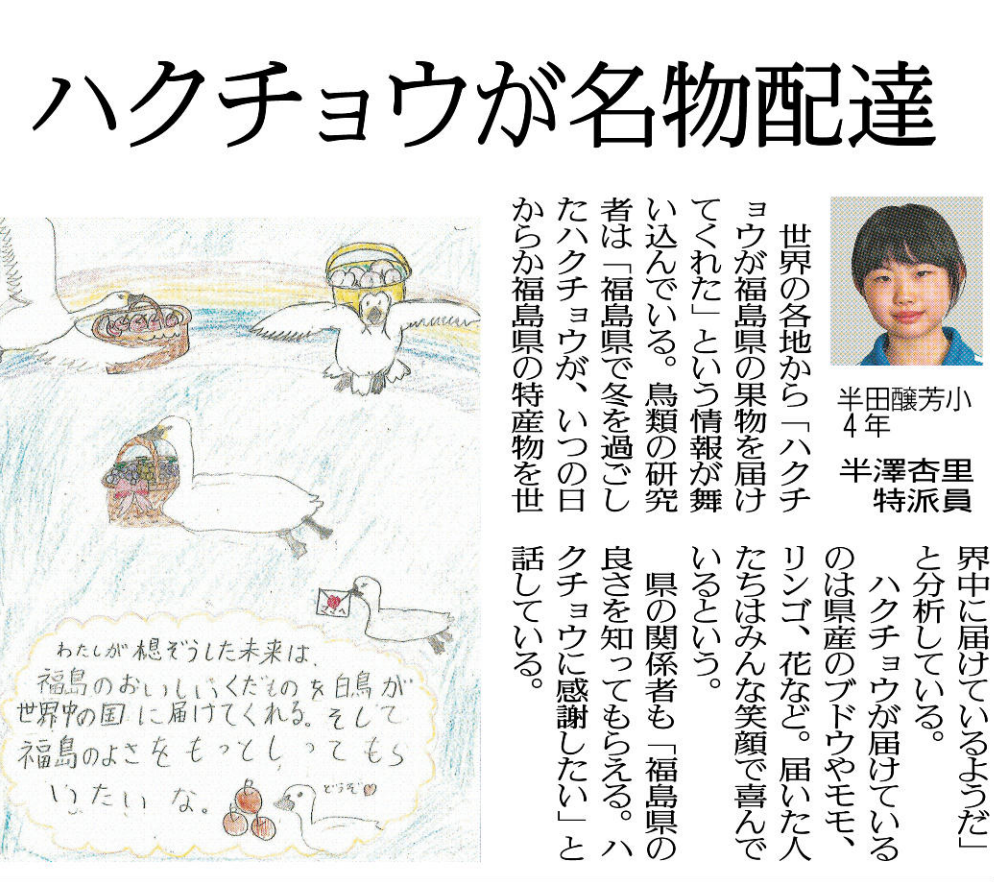 ハクチョウが名物配達
半田醸芳小
4年
半澤杏里
特派員
世界の各地から「ハクチ
ョウが福島県の果物を届け
てくれた」という情報が舞
い込んでいる。鳥類の研究
者は「福島県で冬を過ごし
たハクチョウが、いつの日
からか福島県の特産物を世
界中に届けているようだ」
と分析している。
ハクチョウが届けている
のは県産のブドウやモモ、
リンゴ、花など。届いた人
たちはみんな笑顔で喜んで
いるという。
県の関係者も「福島県の
良さを知ってもらえる。ハ
クチョウに感謝したい」と
話している。
わたしが想ぞうした未来は、
福島のおいしいくだものを白鳥が
世界中の国に届けてくれる。そして
福島のよさをもっとしってもら
いたいな。
どうぞ